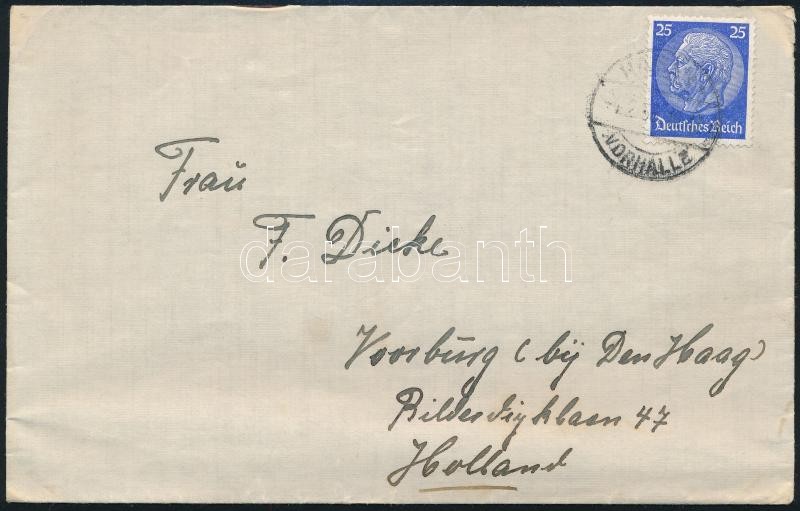 25 25
Deutsches Reich
VORHALLE
Frau
F. Dicke
darabanth
Voorburg (bij Den Haag)
Bilderdijklaan 47
Holland